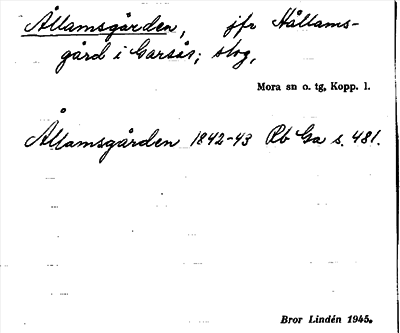 Ållamsgården, jfr Hållams-
gård i Garsås; skog,
Mora sn o. tg, Kopp. l.
Ållamsgården 1842-43 Rb Ga s. 481.
Bror Lindén 1945.